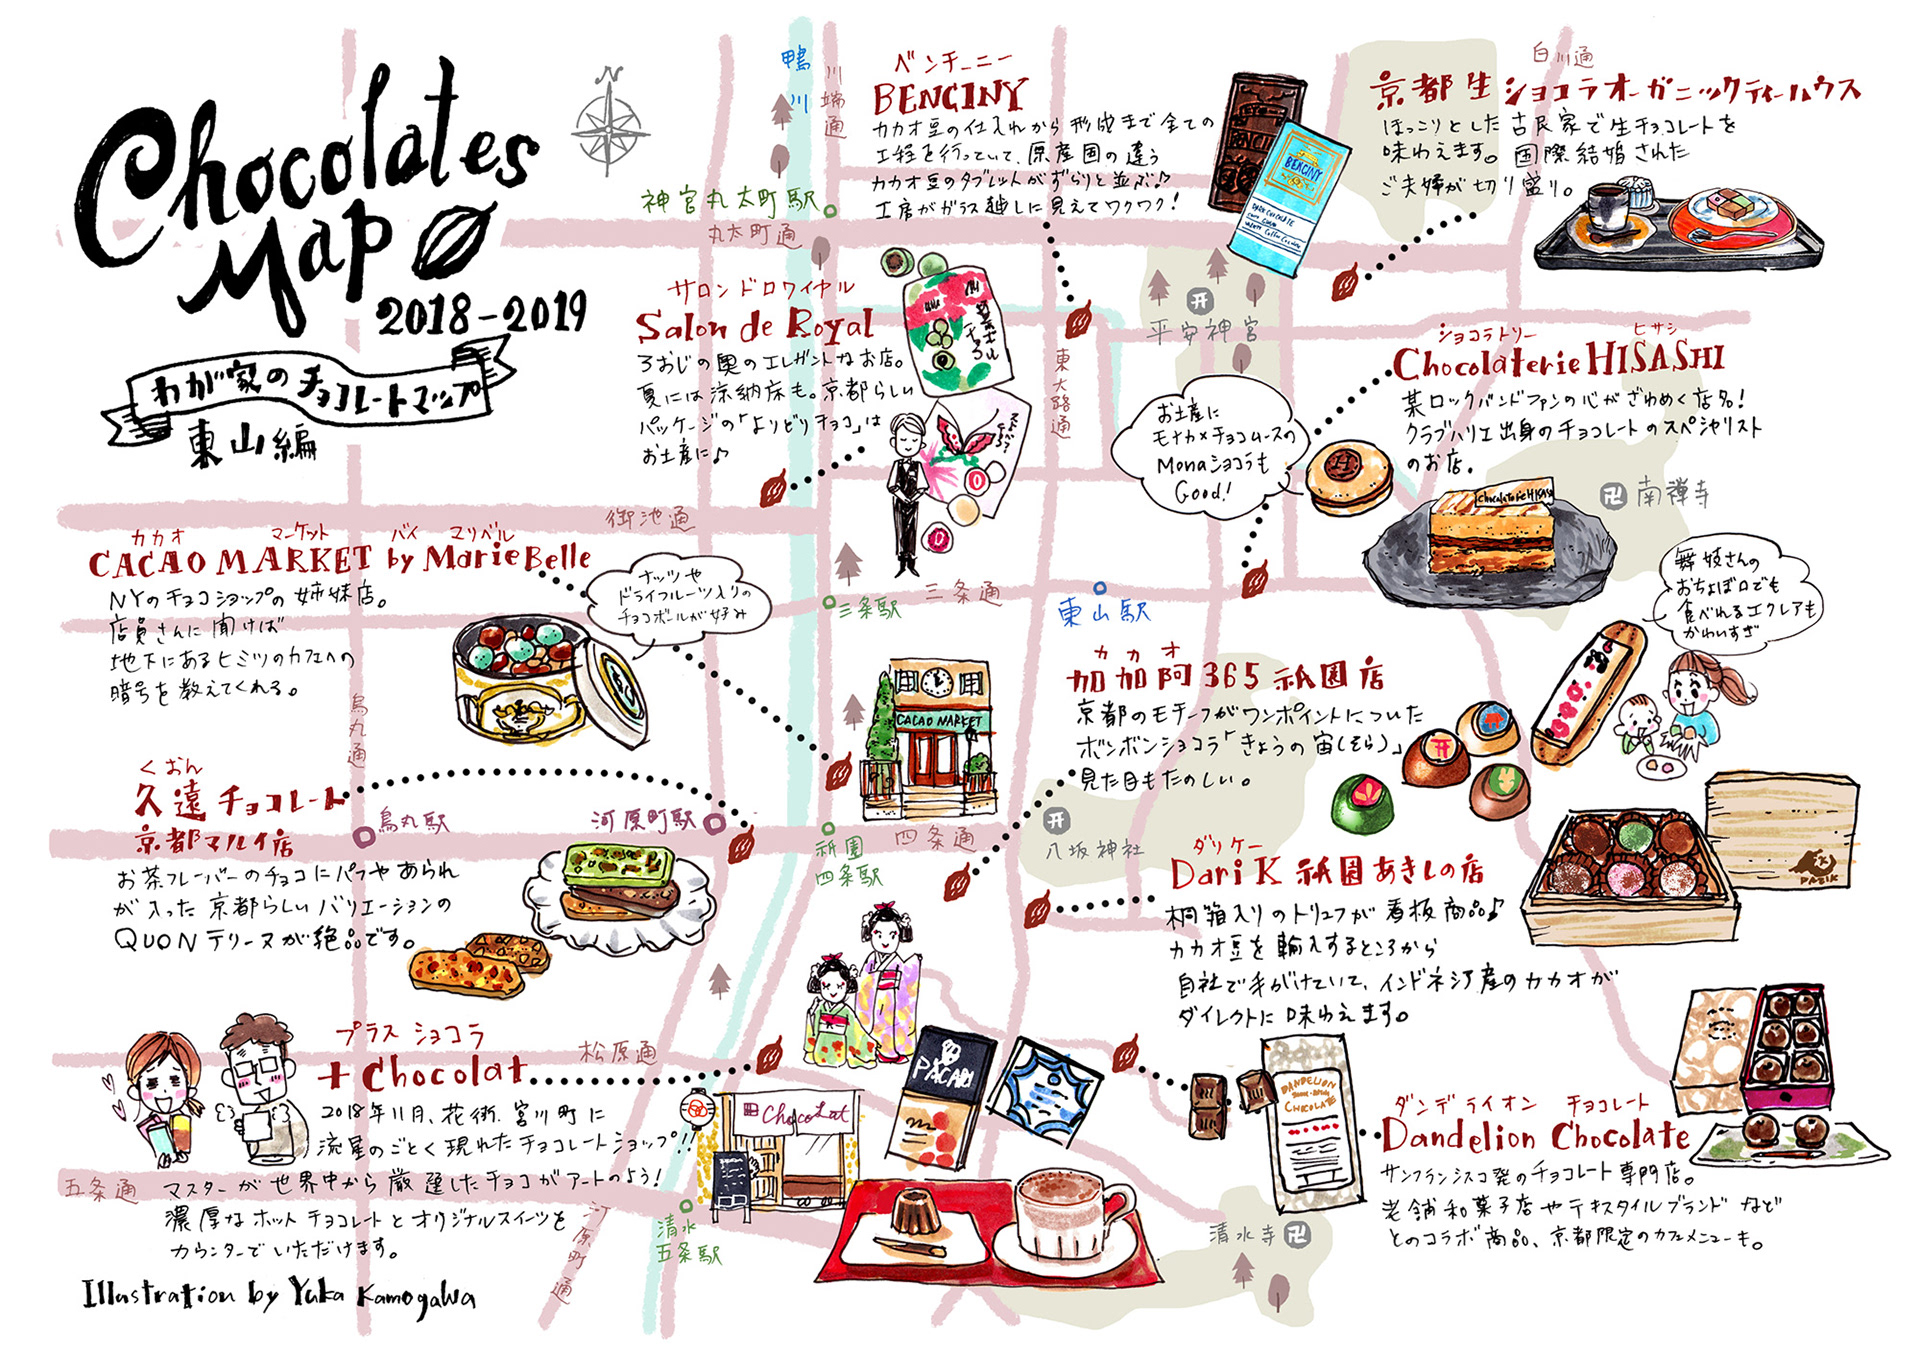 Chocolates
Map
2018-2019
わが家のチョコレートマップ
東山編
N
鴨川
川端通
神宮丸太町駅
丸太町通
ベンチーニー
BENCINY
カカオ豆の仕入れから形成まで全ての
工程を行っていて、原産国の違う
カカオ豆のタブレットがずらりと並ぶ♪
工房がガラス越しに見えてワクワク!
BENCINY
白川通
京都生ショコラオーガニックティーハウス
ほっこりとした古民家で生チョコレートを
味わえます。国際結婚された
ご夫婦が切り盛り。
サロンドロワイヤル
Salon de Royal
ろおじの奥のエレガントなお店。
夏には涼納床も。京都らしい
パッケージの「よりどりチョコ」は
お土産に♪
東大路通
平安神宮
ショコラトリー ヒサシ
Chocolaterie HISASHI
某ロックバンドファンの心がざわめく店名!
クラブハリエ出身のチョコレートのスペシャリスト
のお店。
お土産に
モナカ×チョコムースの
Monaショコラも
Good!
Chocolaterie HISASHI
南禅寺
御池通
カカオ マーケット バイ マリベル
CACAO MARKET by MarieBelle
NYのチョコショップの姉妹店。
店員さんに聞けば
地下にあるヒミツのカフェへの
暗号を教えてくれる。
ナッツや
ドライフルーツ入りの
チョコボールが好み
三条通
三条駅
東山駅
CACAO MARKET
舞妓さんの
おちょぼ口でも
食べれるエクレアも
かわいすぎ
カカオ
加加阿365祇園店
京都のモチーフがワンポイントについた
ボンボンショコラ「きょうの宙(そら)」
見た目もたのしい。
烏丸通
くおん
久遠チョコレート
京都マルイ店
お茶フレーバーのチョコにパフやあられ
が入った京都らしいバリエーションの
QUONテリーヌが絶品です。
烏丸駅
河原町駅
祇園
四条駅
四条通
八坂神社
ダリケー
Dari K 祇園あきしの店
桐箱入りのトリュフが看板商品♪
カカオ豆を輸入するところから
自社で手がけていて、インドネシア産のカカオが
ダイレクトに味わえます。
DARIK
プラス ショコラ
+Chocolat
2018年11月、花街、宮川町に
流星のごとく現れたチョコレートショップ!!
マスターが世界中から厳選したチョコがアートのよう!
濃厚なホットチョコレートとオリジナルスイーツを
カウンターでいただけます。
松原通
ChocoLat
PACARI
DANDELION
CHOCOLATE
ダンデライオン チョコレート
Dandelion Chocolate
サンフランシスコ発のチョコレート専門店。
老舗和菓子店やテキスタイルブランドなど
とのコラボ商品、京都限定のカフェメニューも。
五条通
河原町通
清水
五条駅
清水寺
Illustration by Yuka Kamogawa